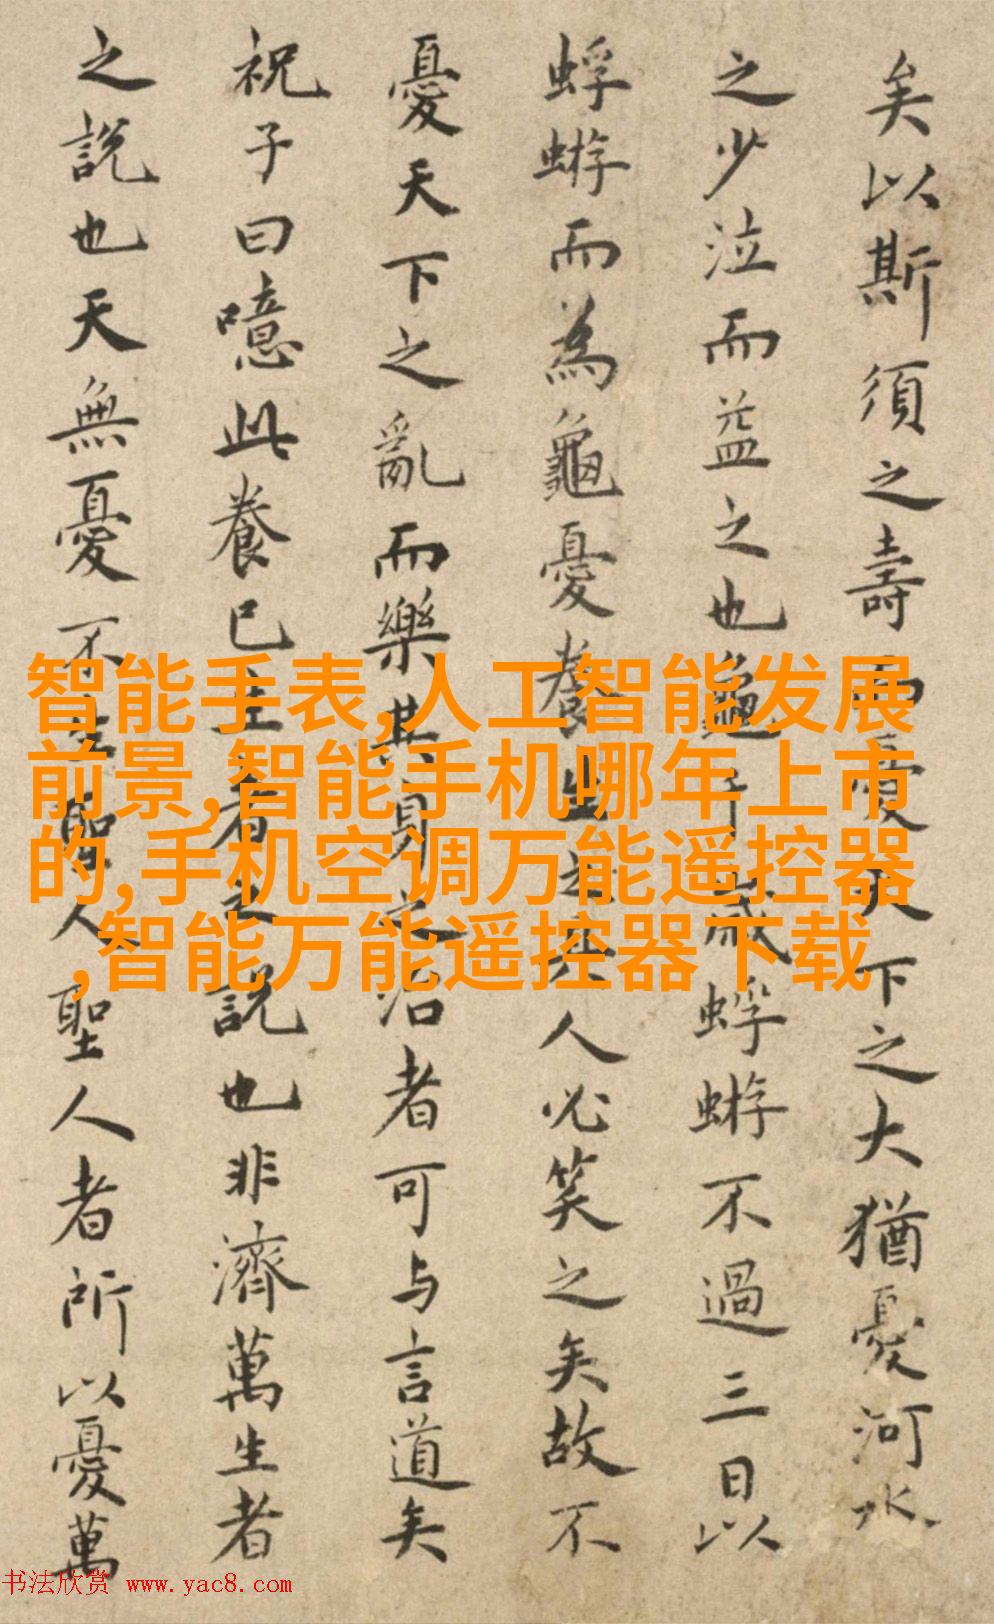 矣以斯須之壽而憂天下之大猶憂河水
之少泣而益之也龜千歲蜉蝣不過三日以
蜉蝣而為龜憂養生之具人必笑之矣故不
憂天下之亂而樂其身之治者可与言道矣
祝子曰噫此養己生者之說也非濟萬生者
之說也天無憂不生聖人聖人者所以憂萬
智能手表,人工智能发展
前景,智能手机哪年上市
的,手机空调万能遥控器
,智能万能遥控器下载
书法欣赏 www.yac8.com